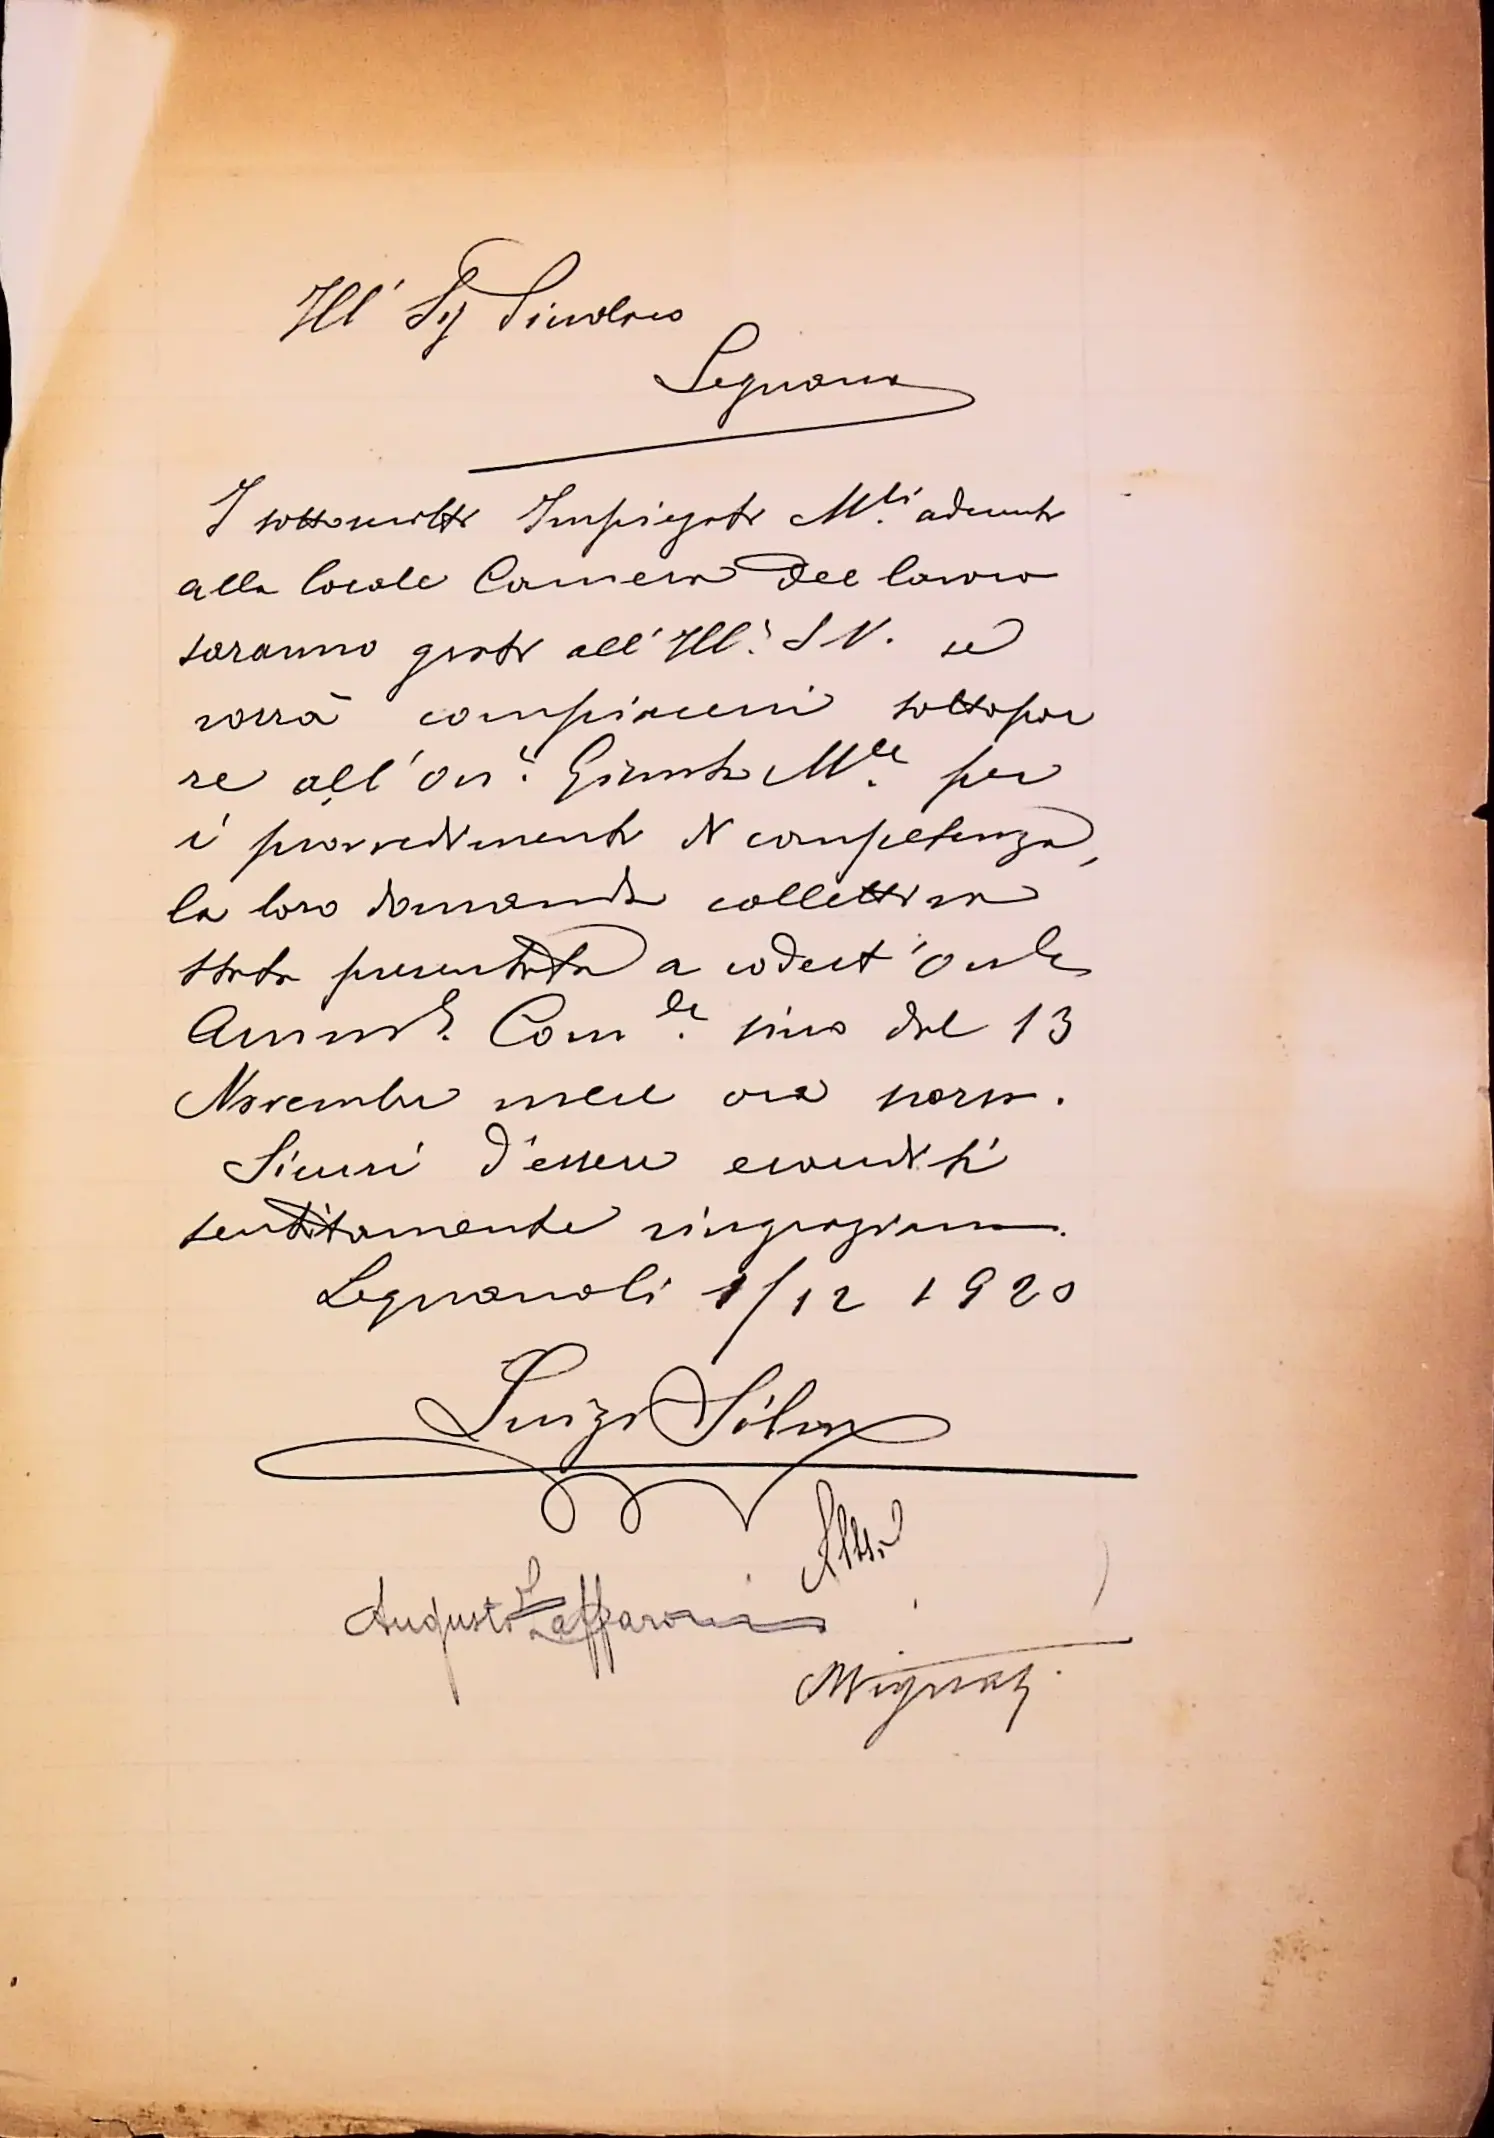 Ill' Sig Sindaco
Legnano
I sottoscritti Impiegati M.li aderenti
alla locale Camera del lavoro
saranno grati all' Ill.' S V. se
vorrà compiacersi sottopor
re all' On.' Giunta M.le per
i provvedimenti di competenza,
la loro domanda collettiva
stata presentata a codest' On.le
Amm.e Com.le sino dal 13
Novembre mese ora scorso.
Sicuri d'essere esauditi
sentitamente ringraziano.
Legnano li 1/12 1920
Luigi
Augusto Zaffaroni